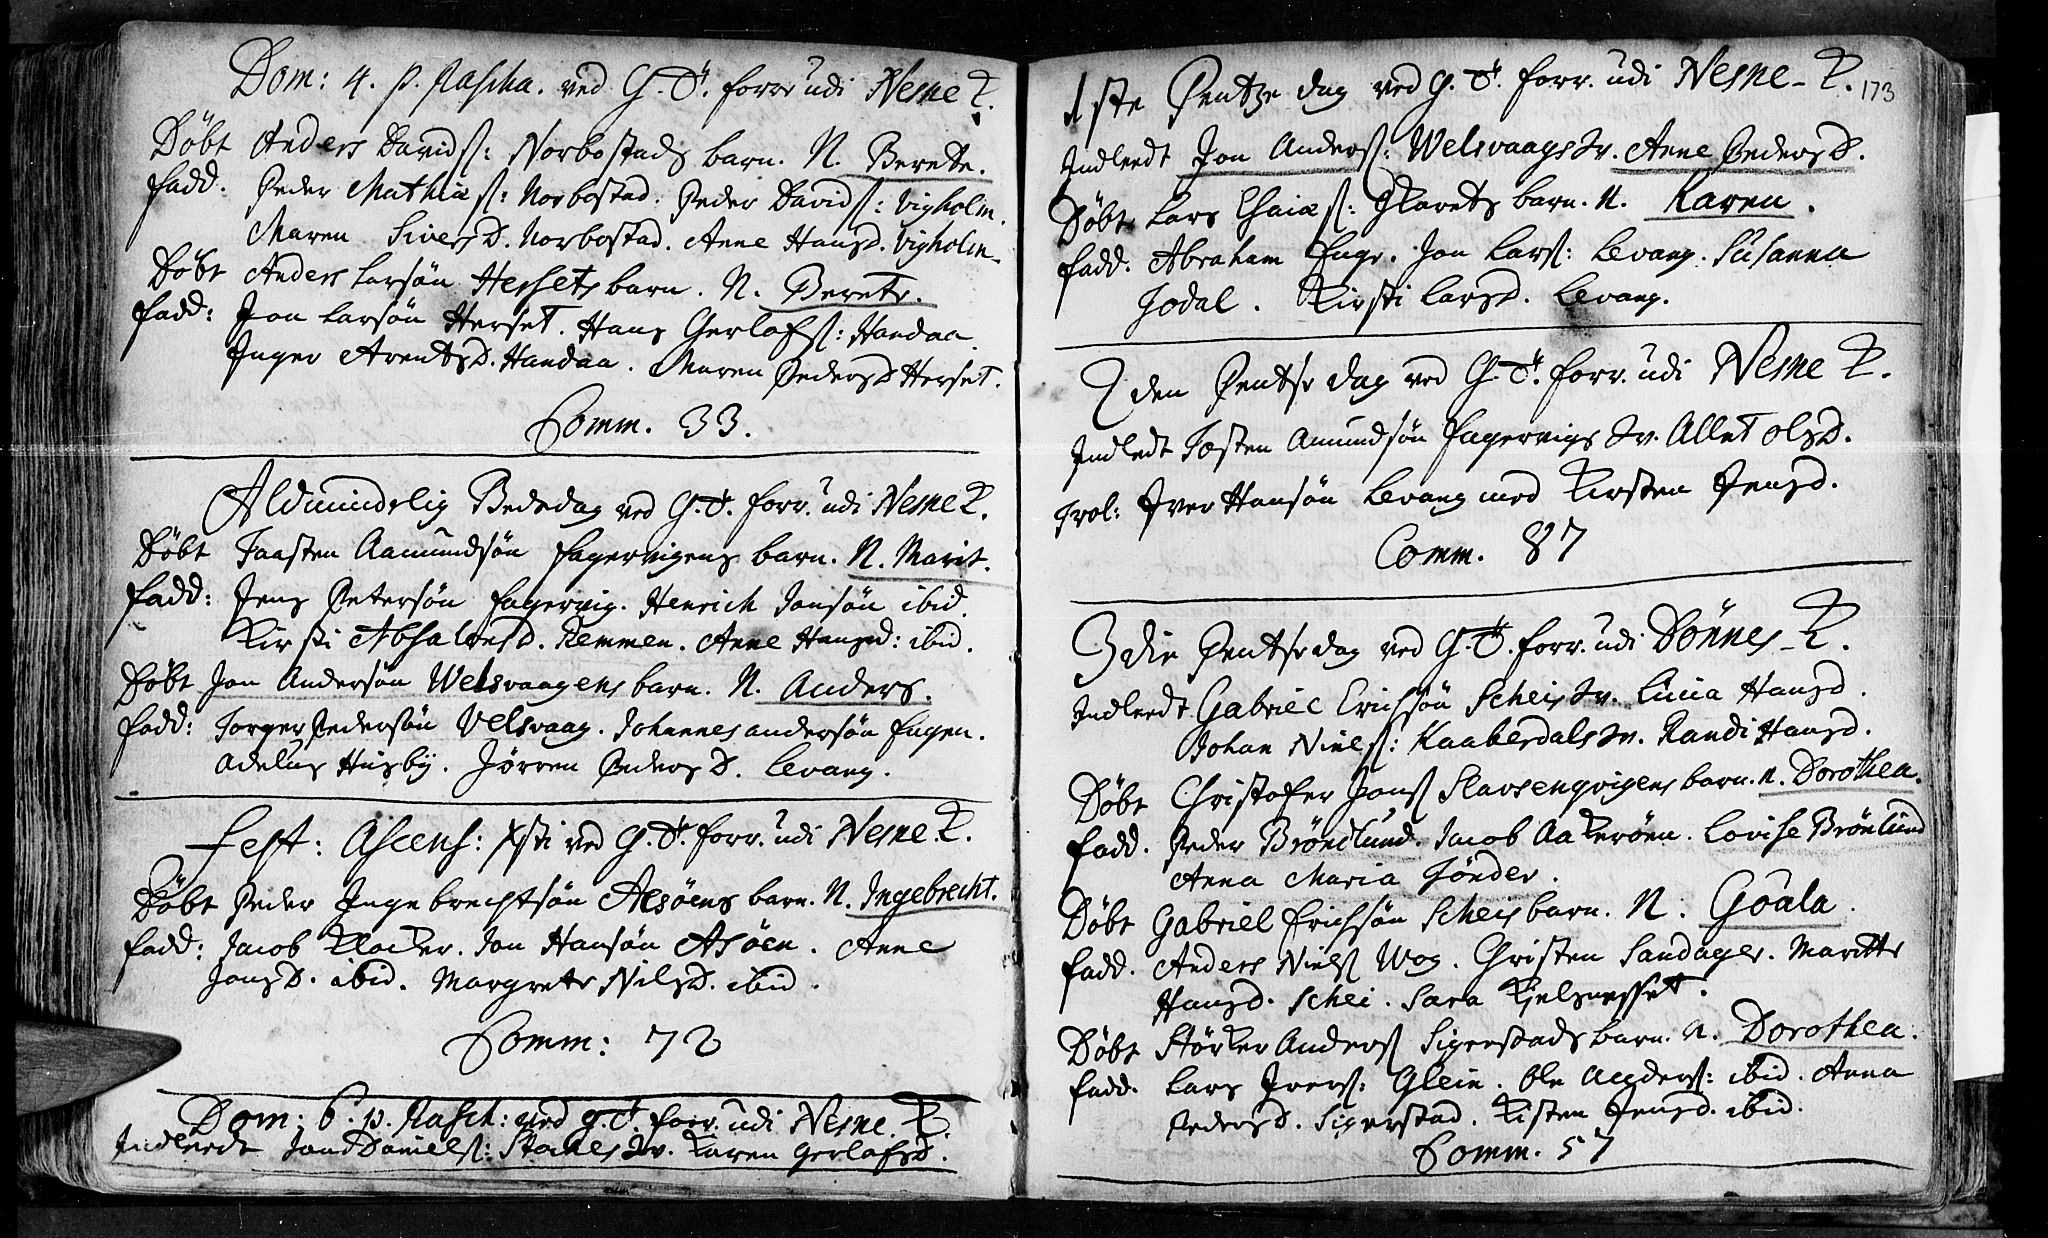 Dom: 4. p. Pascha. ved G. T. forr. udi Nesne K.
Døbt Anders Davids: Norbostads barn. N. Berete.
fadd: Peder Mathiæs: Norbostad. Peder Davids: Vigholm.
Maren SiversD. Norbostad. Anne Hansd. Vigholm.
Døbt Anders Larsøn Hersets barn. N. Berete.
fadd: Jon Larsøn Herset. Hans Gerlofs: Handaa.
Inger ArentsD. Handaa. Maren PedersD Herset.
Comm. 33.
Aldmindelig Bededag ved G. T. forr. udi Nesne K.
Døbt Taasten Aamundsøn Fagervigens barn. N. Marit.
fadd: Jens Petersøn Fagervig. Henrich Jonsøn ibid.
Kirsti AbsalonsD. Remmen. Anne Hansd: ibid.
Døbt Jon Andersøn Welsvaagens barn. N. Anders.
fadd: Torger Pedersøn Velsvaag. Johannes andersøn Engen.
Adelus Husby. Jørren PedersD. Levang.
Fest: Ascens: Xsti ved G. T. forr. udi Nesne K.
Døbt Peder Ingebrechtsøn Alsøens barn. N. Ingebrecht.
fadd: Jacob Klocker. Jon Hansøn Asøen. Anne
JonsD. ibid. Margrete NilsD. ibid.
Comm: 72
Dom: 6. p. Pasch: ved G. T. forr. udi Nesne. K.
Indleedt Jon Daniels: Stokes Qv. Karen GerlofsD.
173
1ste Pentze dag ved G. T. forr. udi Nesne K.
Indleedt Jon Anders: Welsvaags Qv. Anne PedersD.
Døbt Lars Esaiæs: barn. N. Karen.
fadd. Abraham Enge. Jon Lars: Levang. Susanna
Jodal. Kirsti Larsd. Levang.
2den Pentse dag ved G. T. forr. udi Nesne K.
Indledt Tosten Amundsøn Fagervigs Qv. Allet OlsD.
Trol: Iver Hansøn Levang med Kirsten Jensd.
Comm. 87
3die Pentse dag ved G. T. forr. udi Dønnes K.
Indleedt Gabriel Erichsøn Scheis Qv. Lucia Hansd.
Johan Niels: Kaaberdals Qv. Randi Hansd.
Døbt Christofer Jons Slavsengvigens barn. n. Dorothea.
fadd. Peder Brøndlund. Jacob Aakerøen. Lovise Brønlund
Anna Maria Tønder.
Døbt Gabriel Erichsøn Scheis barn. N. Goala.
fadd. Anders Niels Wog. Christen Sandager. Maritte
Hansd. Schei. Sara Kjelsnesset.
Døbt Størker Anders Sigerstads barn. n. Dorothea.
fadd. Lars Ivers: Glein. Ole Anders: ibid. Anna
PedersD. Sigerstad. Kisten Jensd. ibid.
Comm. 57